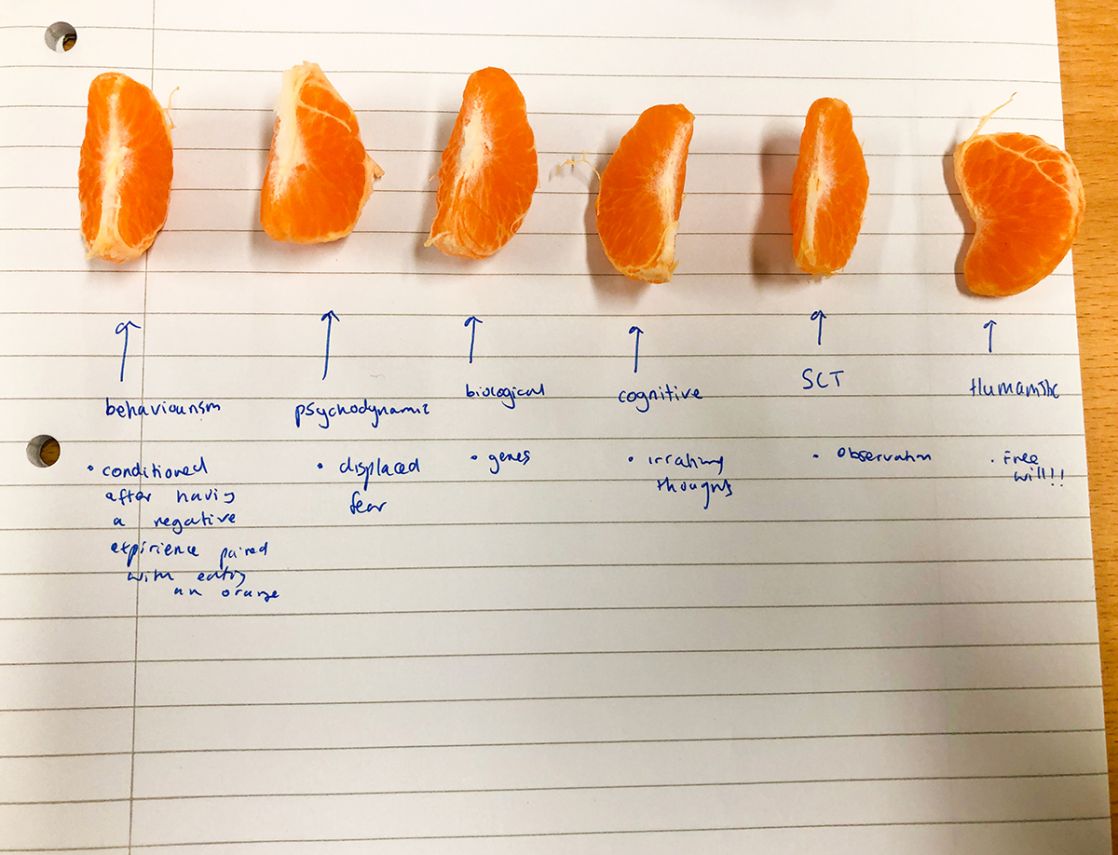 behaviourism
psychodynamic
biological
cognitive
SCT
Humanistic
• conditioned
after having
a negative
expirience paired
with eating
an orange
• displaced
fear
• genes
• irrational
thoughts
• observation
• Free
will!!